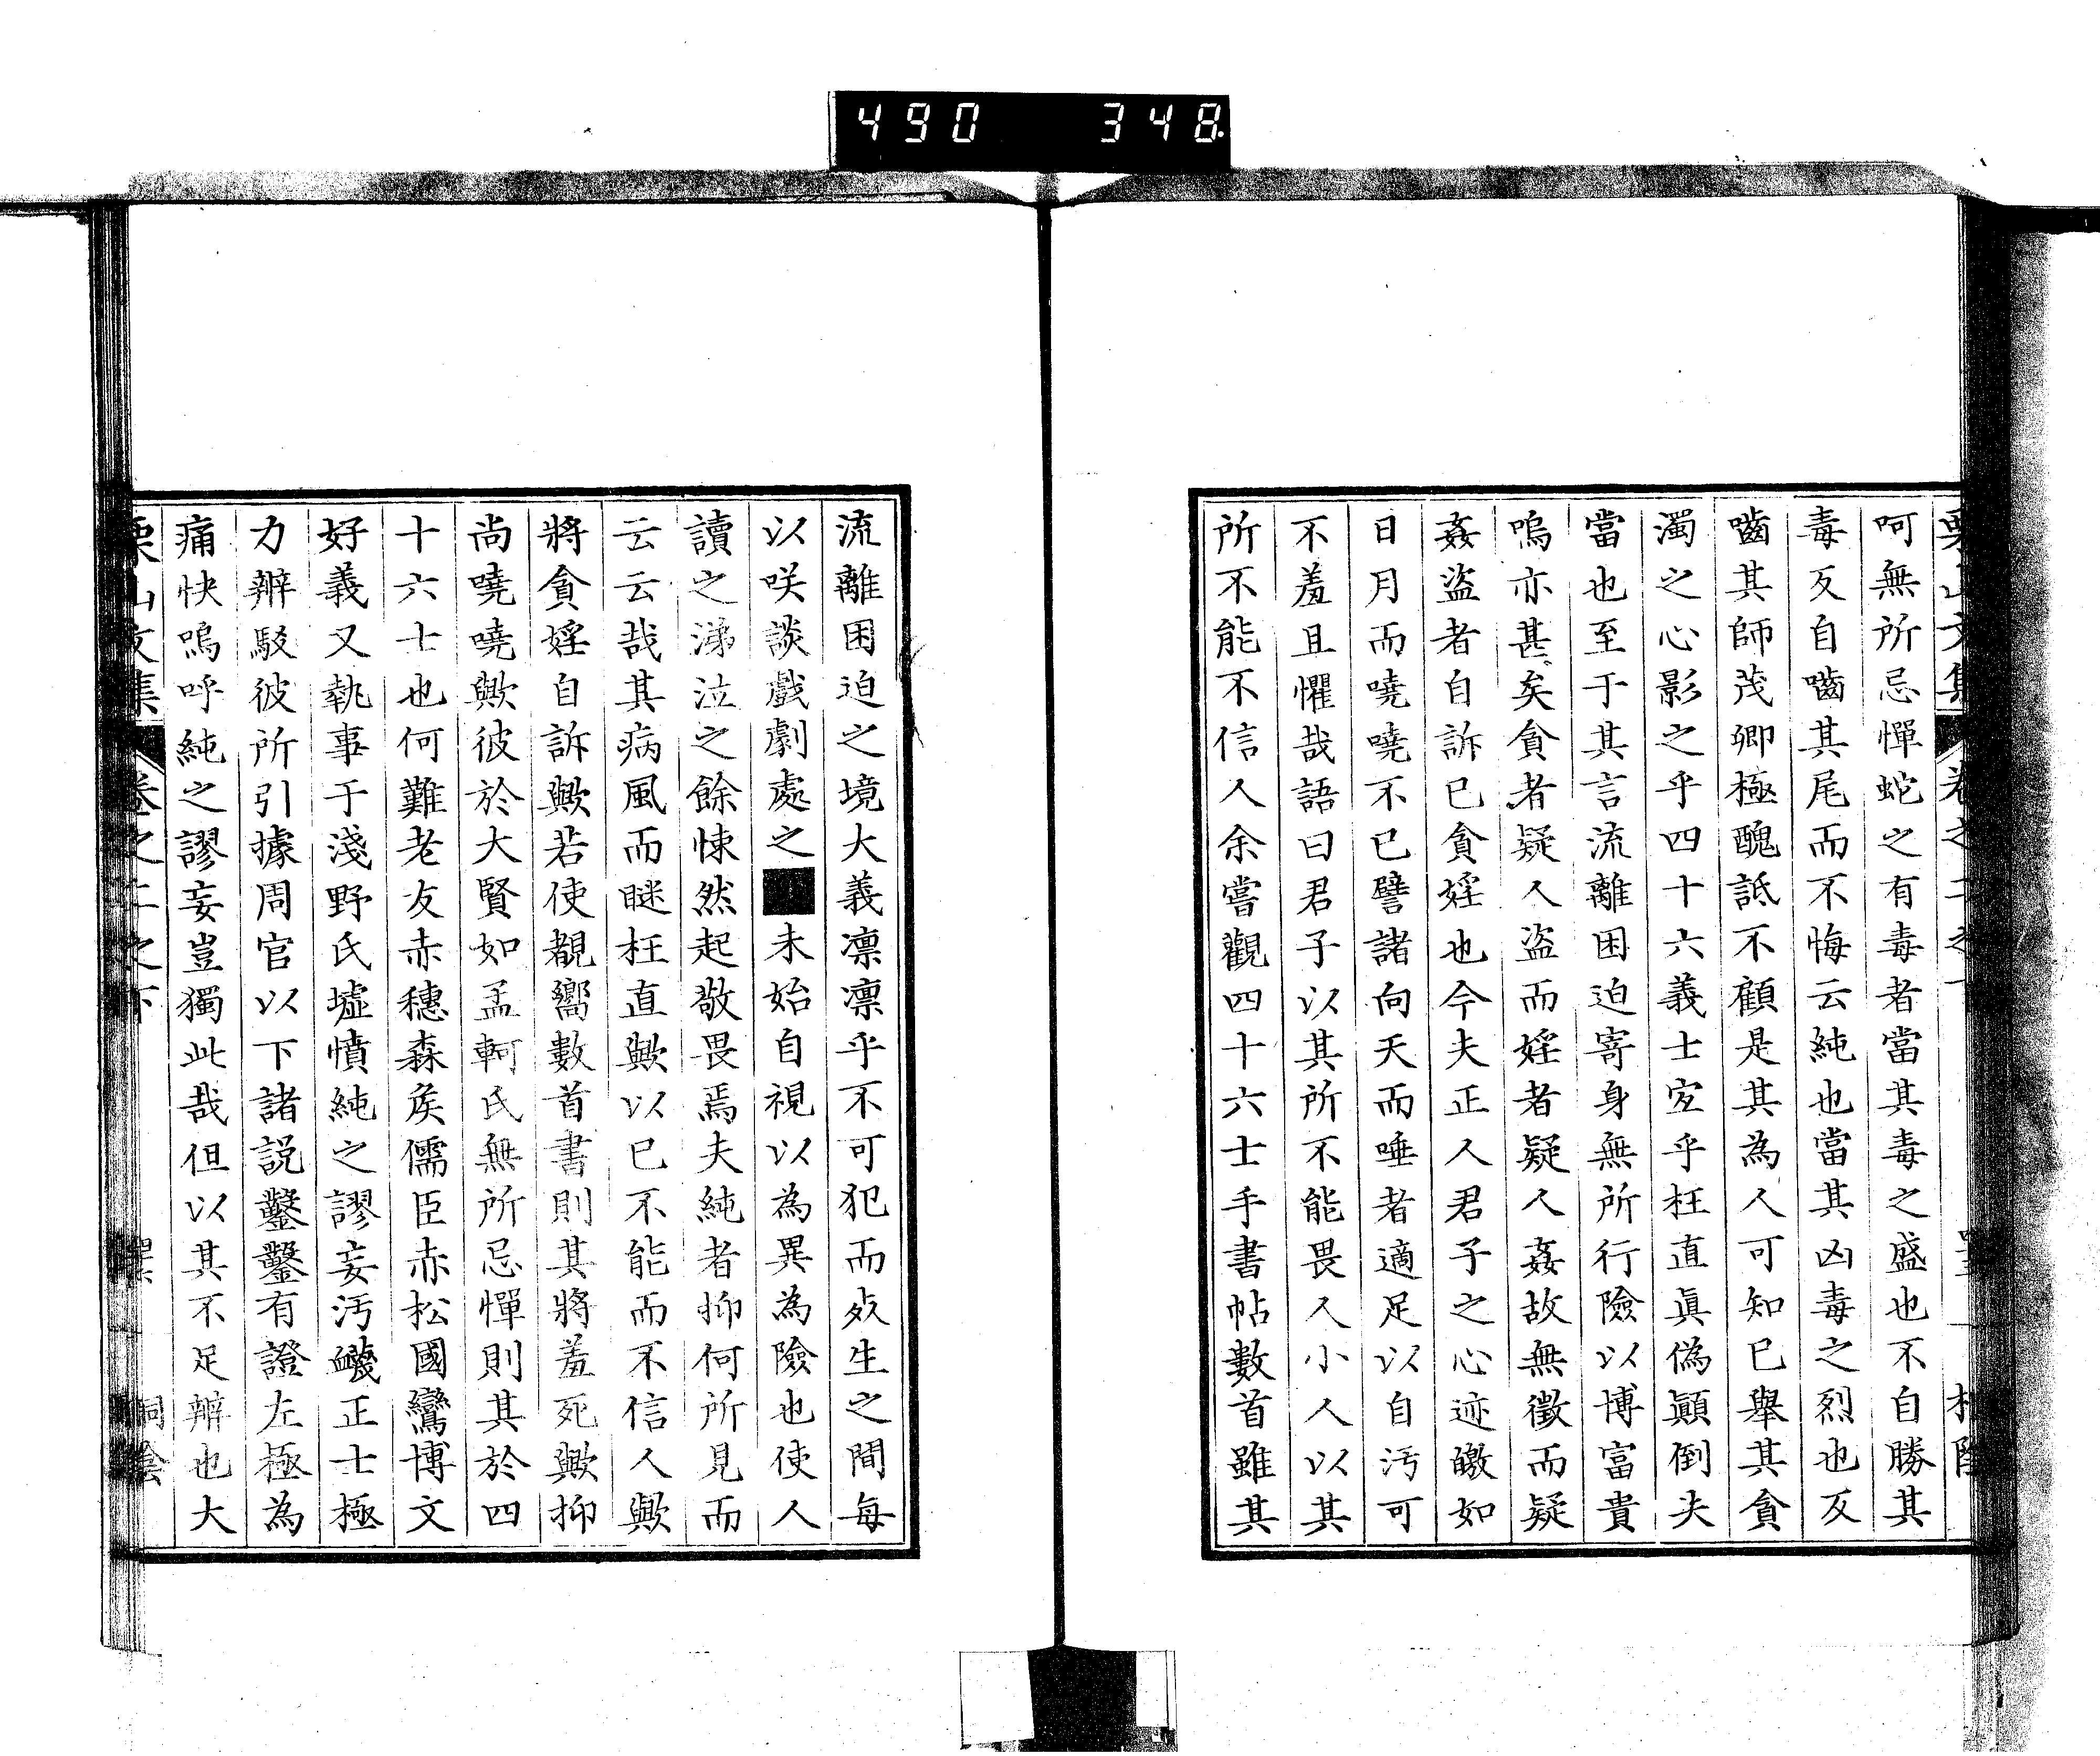 490 348
栗山文集 卷之二之下
呵無所忌憚蛇之有毒者當其毒之盛也不自勝其
毒反自嚙其尾而不悔云純也當其凶毒之烈也反
嚙其師茂卿極醜詆不顧是其為人可知已舉其貪
濁之心影之乎四十六義士宐乎枉直眞僞顚倒失
當也至于其言流離困迫寄身無所行險以博富貴
嗚亦甚矣貪者疑人盜而婬者疑人姦故無徵而疑
姦盜者自訴已貪婬也今夫正人君子之心迹皦如
日月而嘵嘵不已譬諸向天而唾者適足以自汚可
不羞且懼哉語曰君子以其所不能畏人小人以其
所不能不信人余嘗觀四十六士手書帖數首雖其
流離困迫之境大義凛凛乎不可犯而㱿生之間每
以咲談戲劇處之■未始自視以為異為險也使人
讀之涕泣之餘悚然起敬畏焉夫純者抑何所見而
云云哉其病風而瞇枉直歟以已不能而不信人歟
將貪婬自訴歟若使覩嚮數首書則其將羞死歟抑
尚嘵嘵歟彼於大賢如孟軻氏無所忌憚則其於四
十六士也何難老友赤穗森矦儒臣赤松國鸞博文
好義又執事于淺野氏墟憤純之謬妄汚衊正士極
力辨駁彼所引據周官以下諸説鑿鑿有證左極為
痛快嗚呼純之謬妄豈獨此哉但以其不足辨也大
栗山文集 卷之二之下 桐陰